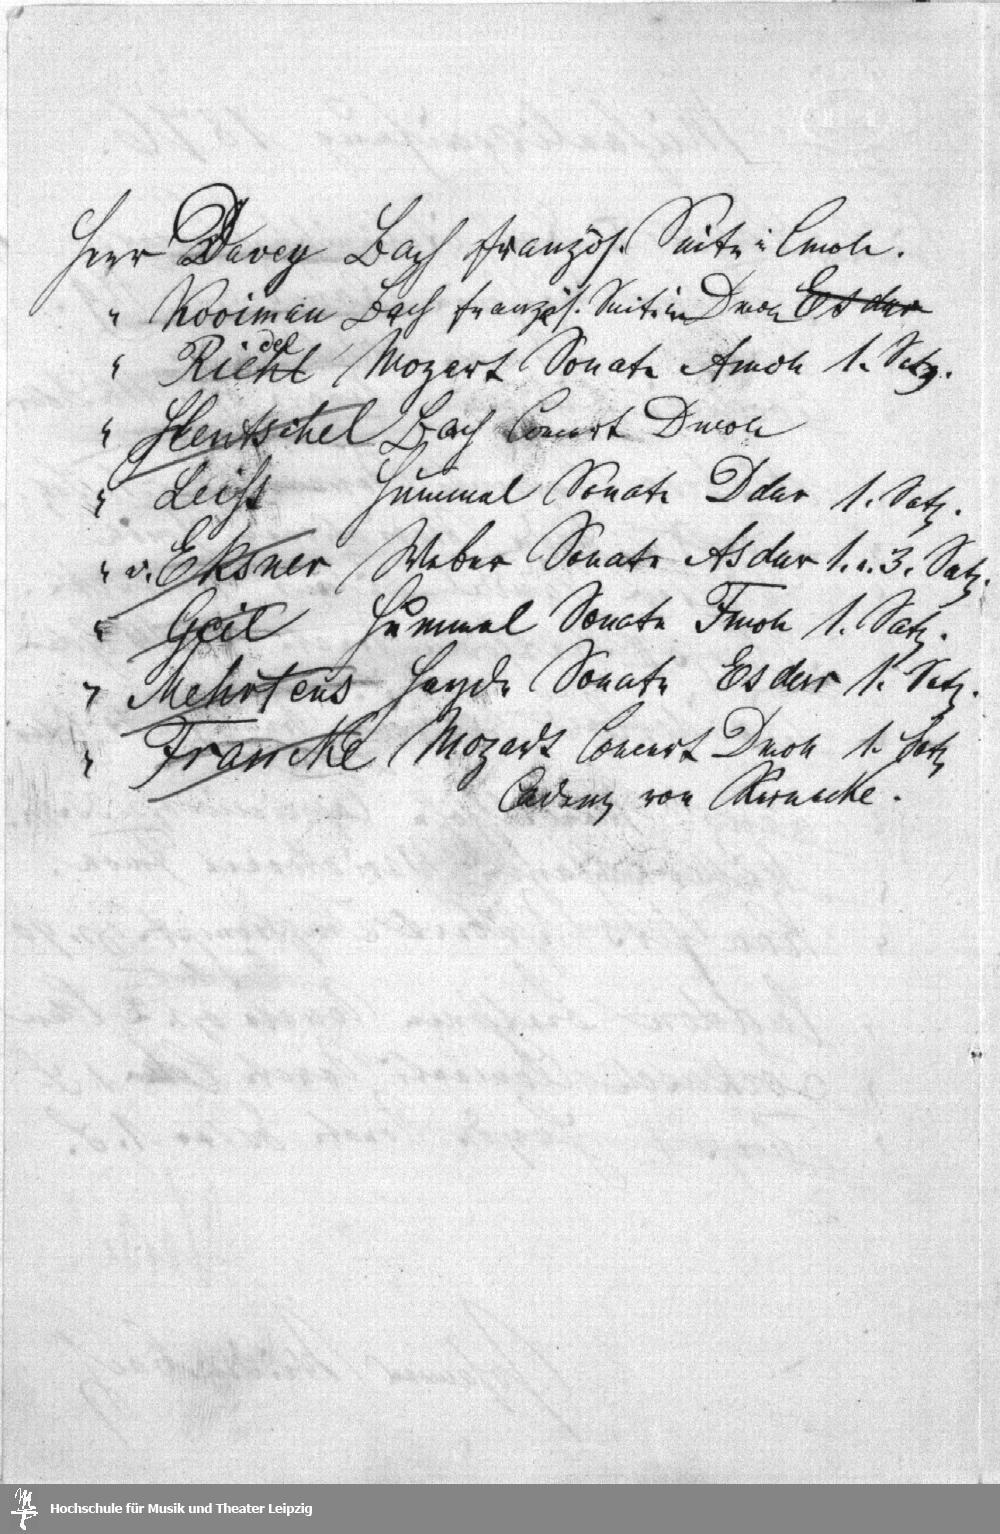 Herr Davey Bach französ. Suite i Cmoll.
" Kooiman Bach französ. Suite in Dmoll Es dur
" Riedel Mozart Sonate Amoll 1. Satz.
" Hentschel Bach Concert Dmoll
" Leist Hummel Sonate Ddur 1. Satz.
" v. Eksner Weber Sonate Asdur 1. u. 3. Satz.
" Geil Hummel Sonate Fmoll 1. Satz.
" Mehrtens Haydn Sonate Es dur 1. Satz.
" Francke Mozart Concert Dmoll 1. Satz
Cadenz von Reinecke.
Hochschule für Musik und Theater Leipzig